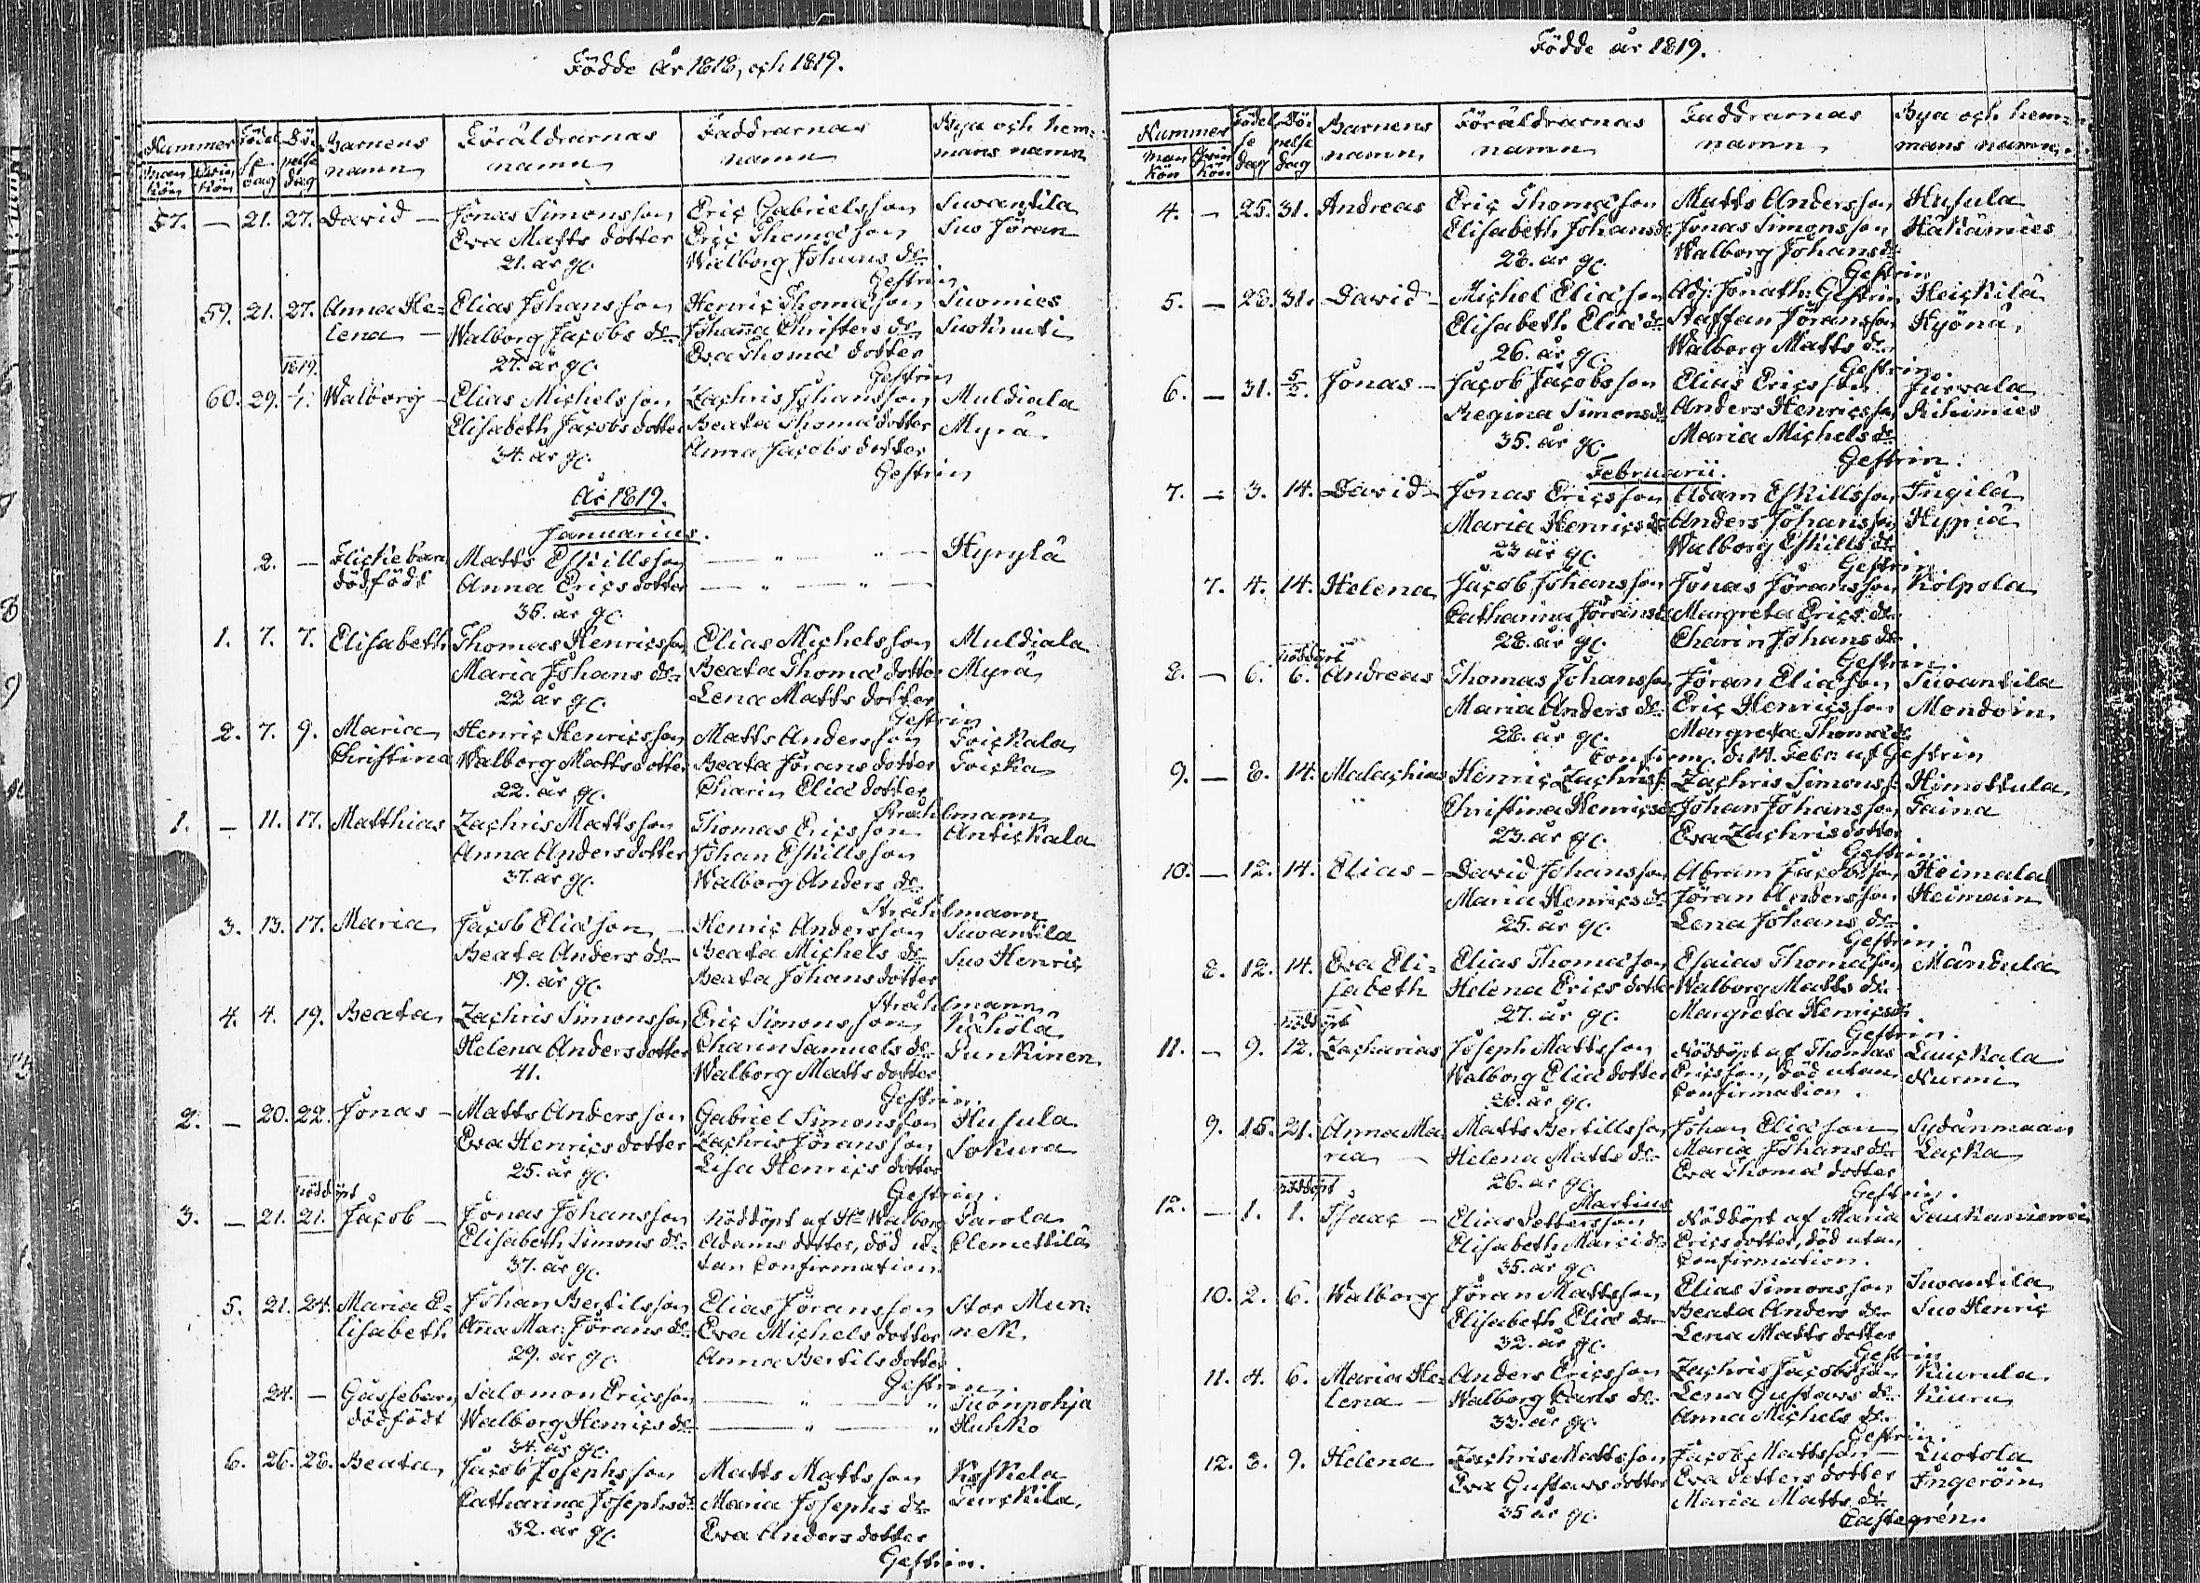 Födde År 1818, och 1819.
Nummer Födel Dö- Barnens Föräldrarnas Faddrarnas Bya och hem-
Man Kön Qvin Kön se dag pelse dag namn namn namn mans namn
57. — 21. 27. David — Jonas Simonsson Eric Gabrielsson Suvantila
Eva Matts dotter Eric Thomæson Suo Jöran
21. år gl. Walborg Johans dr
Gestrin
59. 21. 27. Anna He= Elias Johansson Henric Thomæson Suomies
lena — Walborg Jacobs dr Johanna Christers dr
27. år gl. Eva Thomæ dotter
1819. Gestrin
60. 29. 1/1. Walborg — Elias Michelsson Zachris Johansson Muldiala
Elisabeth Jacobs dotter Beata Thomæ dotter Myrä
34. år gl. Anna Jacobs dotter
Gestrin
År 1819.
Januarius.
2. — Flickebarn Matts Eskillsson — " — " — Hyrylä
dödfödt Anna Erics dotter — " — " —
35. år gl.
1. 7. 7. Elisabeth Thomas Henricsson Elias Michelsson Muldiala
Maria Johans dr Beata Thomæ dotter Myrä
22 år gl. Lena Matts dotter
Gestrin
2. 7. 9. Maria Henric Henricsson Matts Andersson Toickala
Christina Walborg Matts dotter Beata Jörans dotter Toicka
22. år gl. Charin Eliæ dotter
Stråhlmann
1. — 11. 17. Matthias Zachris Mattsson Thomas Ericsson Antickala
Anna Anders dotter Johan Eskillsson
37. år gl. Walborg Anders dr
Stråhlmann
3. 13. 17. Maria Jacob Eliæson — Henric Andersson Suvantila
Beata Anders dr — Beata Michels dr Suo Henric
19. år gl. Beata Johans dotter
Stråhlmann
4. 4. 19. Beata Zachris Simonsson Eric Simonsson
Helena Anders dotter Charin Samuels dr Punkinen
41. Walborg Matts dotter
Gestrin.
2. — 20. 22. Jonas — Matts Andersson Gabriel Simonsson Husula
Eva Henrics dotter Zachris Jöransson Sokura
25. år gl. Lisa Henrics dotter
nöddöpt Gestrin.
3. — 21. 21. Jacob — Jonas Johansson Nöddöpt af Walborg Parola
Elisabeth Simons dr Adams dotter, död u= Clemettilä
37. år gl. tan Confirmation
5. 21. 24. Maria E= Johan Bertilsson Elias Jöransson Stor Mun=
lisabeth Anna Mar: Jörans dr Eva Michels dotter
29. år gl. Anna Bertils dotter
Gestrin
24. — Gåssebarn Salomon Ericsson — " — " Suonpohja
dödfödt Walborg Henrics dr — " — " Huhko
34. år gl.
6. 26. 28. Beata Jacob Josephsson Matts Mattsson Keskela
Catharina Josephs dr Maria Josephs dr
32. år gl. Eva Anders dotter
Gestrin.
Födde år 1819.
Nummer Födel Dö- Barnens Föräldrarnas Faddrarnas Bya och hem-
Man Kön Qvin Kön se dag pelse dag namn namn namn mans namn
4. — 25. 31. Andreas Eric Thomæson Matts Andersson Husula
Elisabeth Johans dr Jonas Simonsson
22. år gl. Walborg Johans dr
Gestrin
5. — 28. 31. David — Michel Eliæson Adj: Jonath: Gestrin Heickilä
Elisabeth Eliæ dr Staffan Jöransson Hyönä
26. år gl. Walborg Matts dr
Gestrin.
6. — 31. 5/2. Jonas — Jacob Jacobsson Elias Ericsson Jurvala
Regina Simons dr Anders Henricsson Kihimies
35. år gl. Maria Michels dr
Gestrin.
Februarii.
7. — 3. 14. David — Jonas Ericsson Adam Eskillsson Ingilä
Maria Henrics dr Anders Johansson Hypiä
23 år gl. Walborg Eskills dr
Gestrin
7. 4. 14. Helena Jacob Johansson Jonas Jöransson Kolpola
Catharina Jörans dr Margreta Erics dr
28. år gl. Charin Johans dr
nöddöpt Gestrin.
8. — 6. 6. Andreas Thomas Johansson Jöran Eliæson Suvantila
Maria Anders dr Eric Henricsson Mondoin
28. år gl. Margreta Thomæ dr
Confirm: d: 14. Febr: af Gestrin
9. — 8. 14. Malachias Henric Zachriss: Zachris Simonss: Himottula
" Christina Henrics dr Johan Johansson Taina
23. år gl. Eva Zachris dotter
Gestrin.
10. — 12. 14. Elias — David Johansson Abram Jacobsson Heimala
Maria Henrics dr Jöran Andersson Heimoin
25. år gl. Lena Johans dr
Gestrin.
8. 12. 14. Eva Eli= Elias Thomæson Esaias Thomæson Mändulä
sabeth Helena Erics dotter Walborg Matts dr
27. år gl. Margreta Henrics dr
nöddöpt Gestrin.
11. — 9. 12. Zacharias Joseph Mattsson Nöddöpt af Thomas Lauckala
Walborg Eliæ dotter Ericsson, död utan Nurmi
26. år gl. Confirmation.
9. 15. 21. Anna Ma Matts Bertillsson Johan Eliæson Sydänmaan
ria — Helena Matts dr Maria Johans dr Lacka
26. år gl. Eva Thomæ dotter
nöddöpt Gestrin.
Martius
12. — 1. 1. Isaac — Elias Pettersson Nöddöpt af Maria
Elisabeth Marci dr Erics dotter, död utan
35. år gl. Confirmation.
10. 2. 6. Walborg Jöran Mattsson Elias Simonsson Suvantila
Elisabeth Eliæ dr Beata Anders dr Suo Henric
32. år gl. Lena Matts dotter
Gestrin
11. 4. 6. Maria He= Anders Ericsson Zachris Jacobsson Kiurula
lena — Walborg Carls dr Lena Gustavs dr Kiuru
33. år gl. Anna Michels dr
Gestrin.
12. 8. 9. Helena Zachris Mattsson Jacob Mattsson — Luotola
Eva Gustavs dotter Eva Petters dotter Ingeröin
35 år gl. Maria Matts dr
Castegrén.